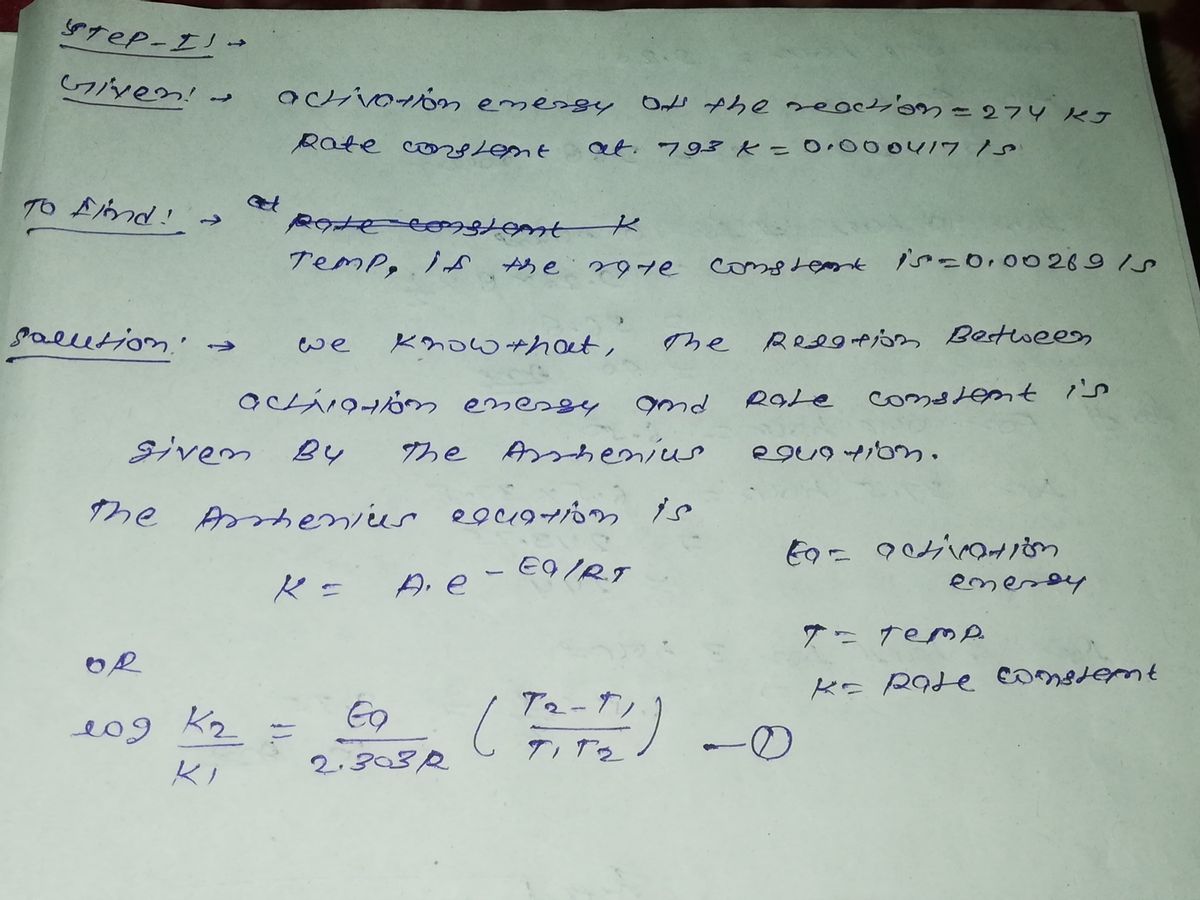 Step-I! →
Given! → activation energy of the reaction = 274 KJ
Rate constant at 793 K = 0.000417 /s
To find! → at Rate constant K
Temp, if the rate constant is = 0.00269 /s
Solution! → we know that, The Relation Between
activation energy and Rate constant is
given By The Arrhenius equation.
The Arrhenius equation is
K = A.e - Ea/RT
Ea = activation energy
T = Temp.
K = Rate constant
OR
log K2/K1 = Ea/2.303R (T2-T1/T1T2) —①